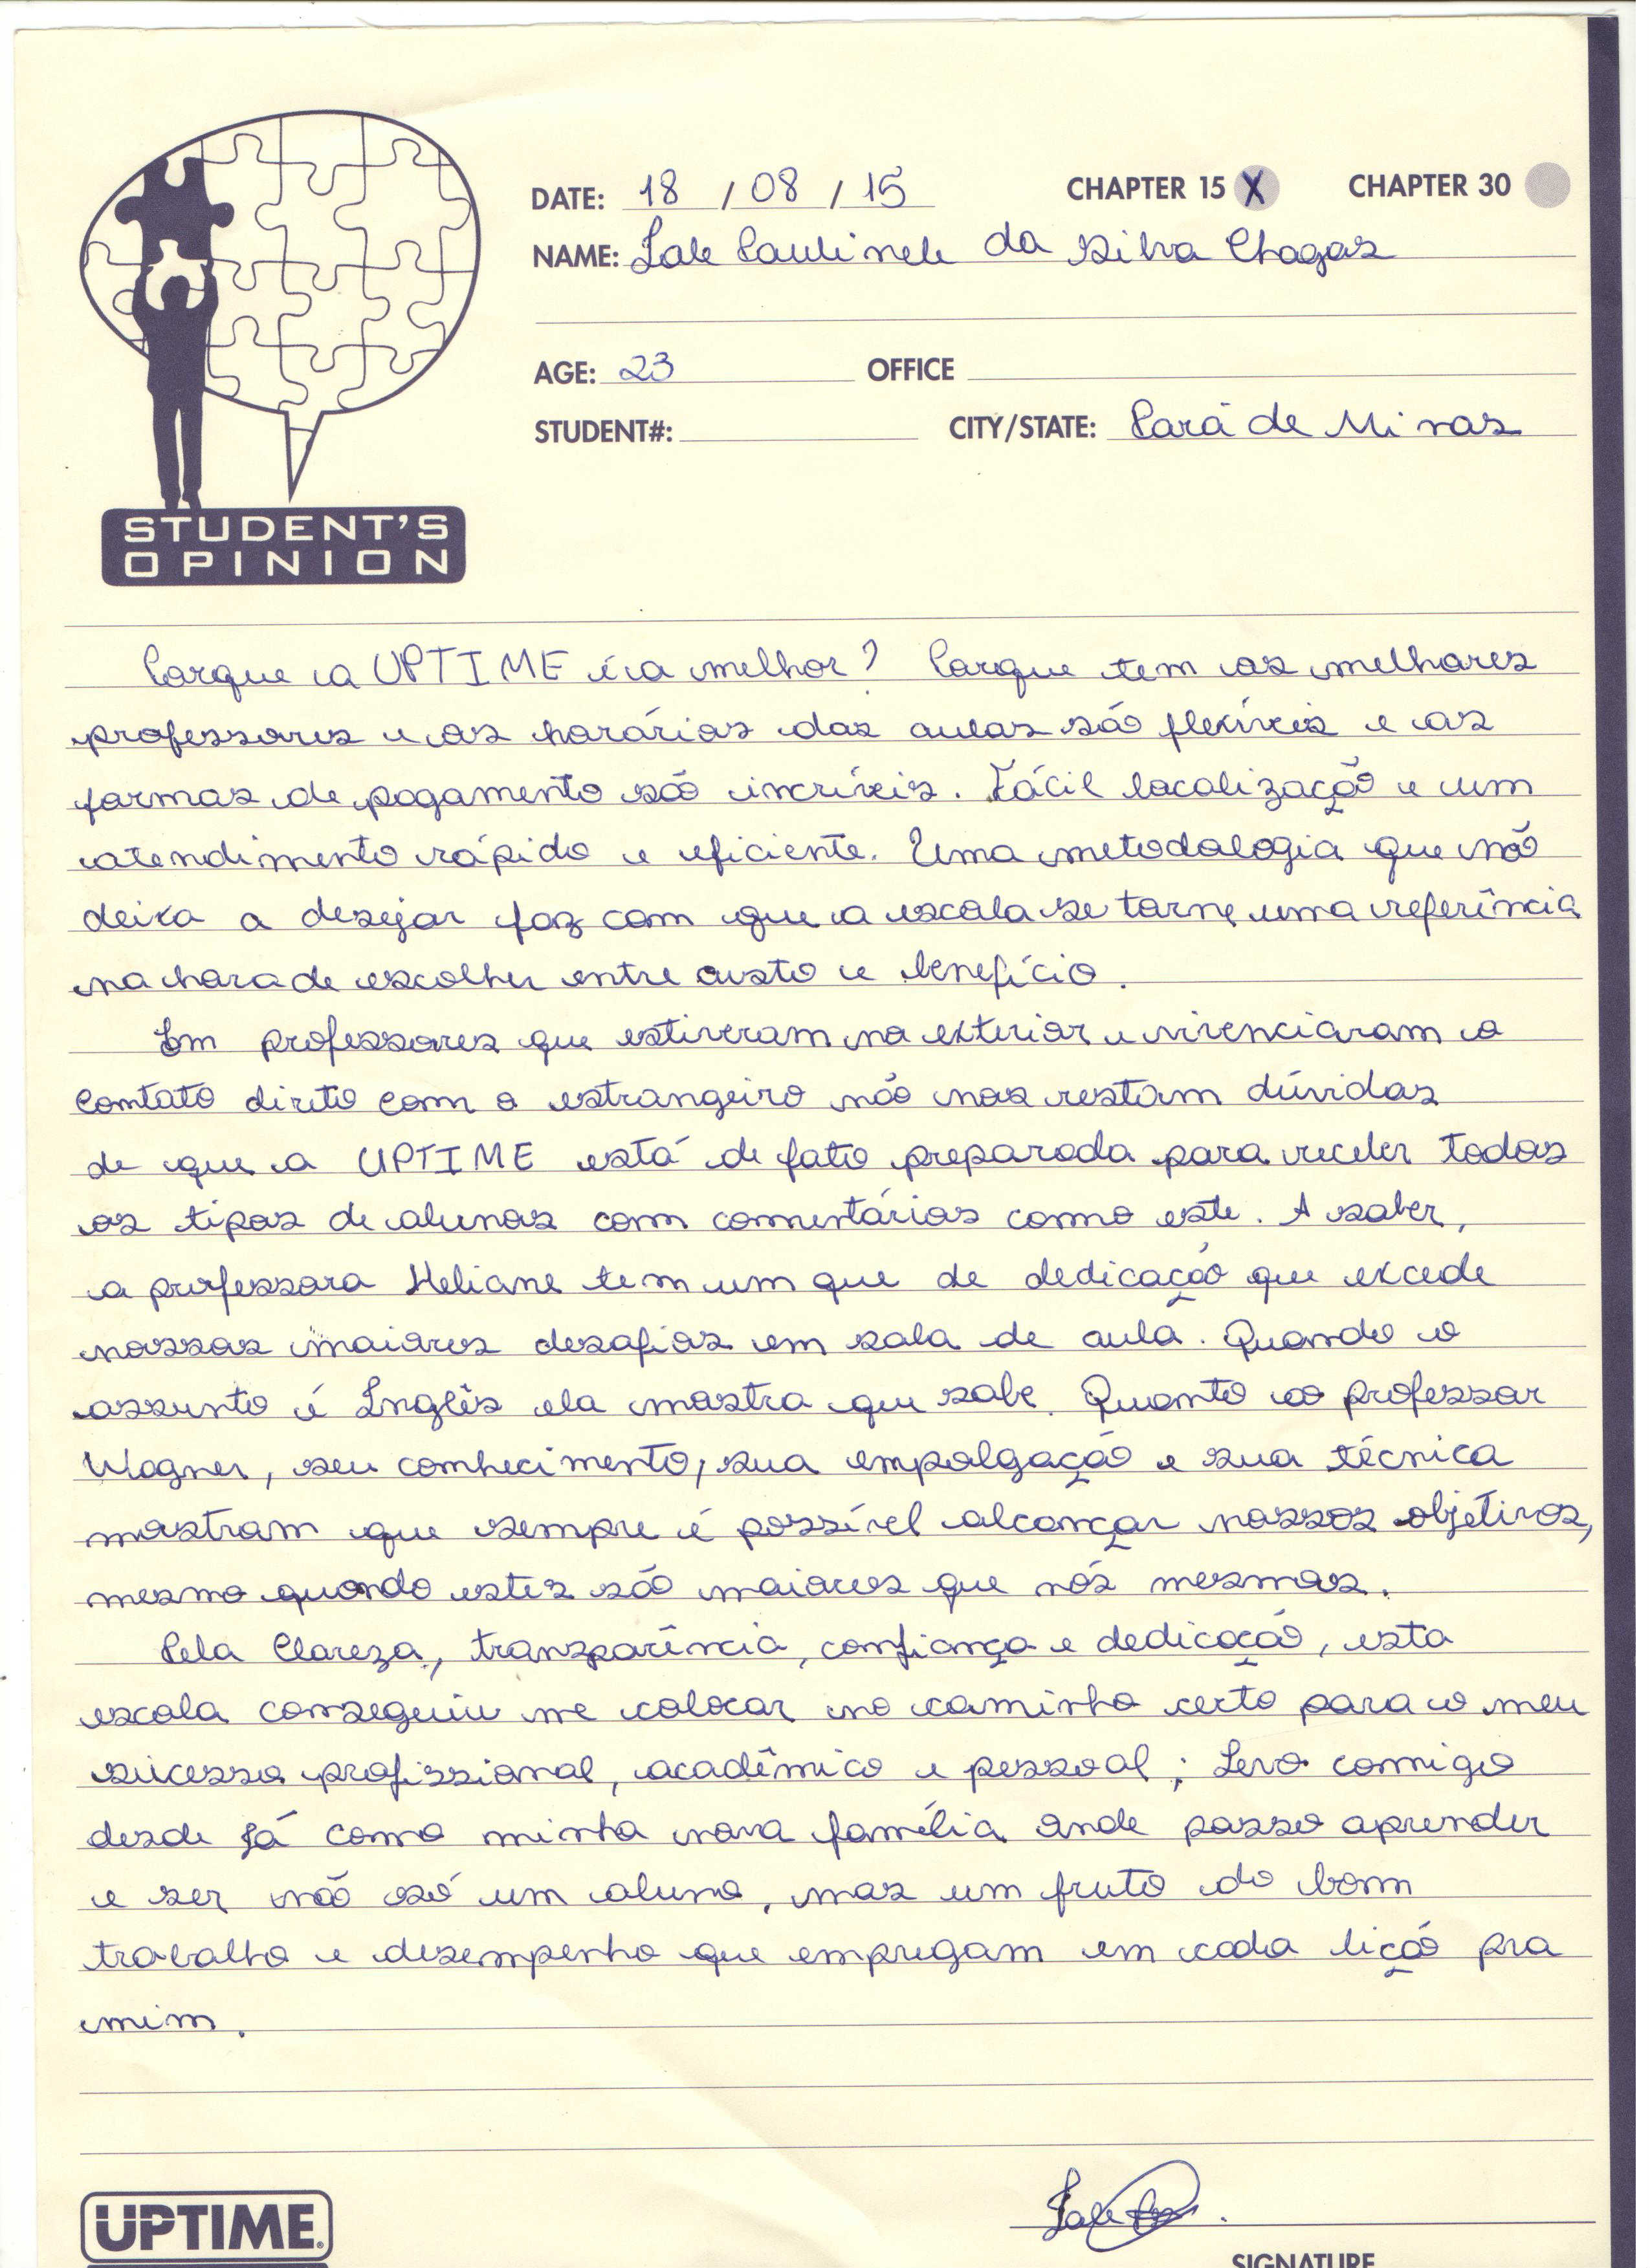 DATE: 18 / 08 / 15 CHAPTER 15 X CHAPTER 30
NAME: da Silva Chagas
AGE: 23 OFFICE
STUDENT#: CITY/STATE: Pará de Minas
STUDENT'S
OPINION
Porque a UPTIME é a melhor? Porque tem os melhores
professores e os horários das aulas são flexíveis e as
formas de pagamento são incríveis. Fácil localização e um
atendimento rápido e eficiente. Uma metodologia que não
deixa a desejar faz com que a escola se torne uma referência
na hora de escolher entre custo e benefício.
Em professores que estiveram no exterior e vivenciaram o
contato direto com o estrangeiro não nos restam dúvidas
de que a UPTIME está de fato preparada para receber todos
os tipos de alunos com comentários como este. A saber,
a professora Heliane tem um que de dedicação que excede
nossos maiores desafios em sala de aula. Quando o
assunto é Inglês ela mostra que sabe. Quanto ao professor
Wagner, seu conhecimento, sua empolgação e sua técnica
mostram que sempre é possível alcançar nossos objetivos,
mesmo quando estes são maiores que nós mesmos.
Pela Clareza, transparência, confiança e dedicação, esta
escola conseguiu me colocar no caminho certo para o meu
sucesso profissional, acadêmico e pessoal; Levo comigo
desde já como minha nova família onde posso aprender
e ser não só um aluno, mas um fruto do bom
trabalho e desempenho que empregam em cada lição pra
mim.
UPTIME
SIGNATURE